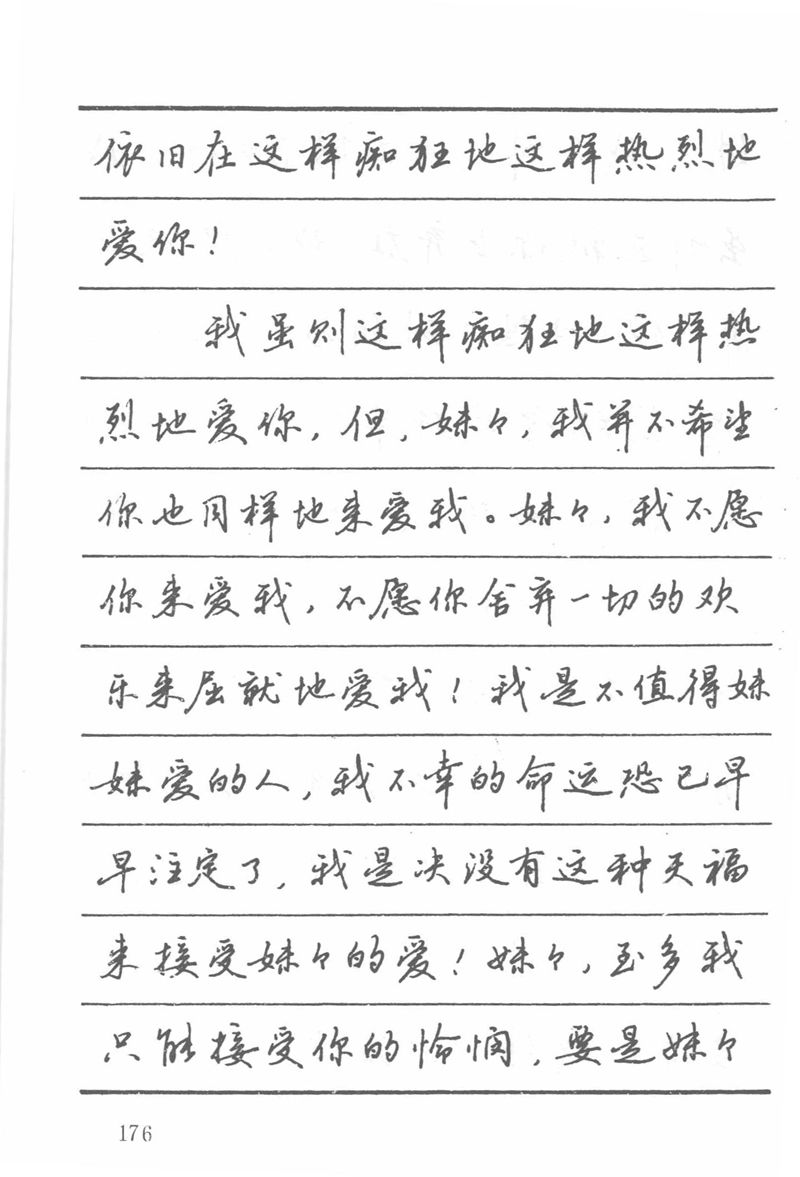 依旧在这样痴狂地这样热烈地
爱你！
我虽则这样痴狂地这样热
烈地爱你，但，妹々，我并不希望
你也同样地来爱我。妹々，我不愿
你来爱我，不愿你舍弃一切的欢
乐来屈就地爱我！我是不值得妹
妹爱的人，我不幸的命运恐已早
早注定了，我是决没有这种天福
来接受妹々的爱！妹々，至多我
只能接受你的怜悯，要是妹々
176